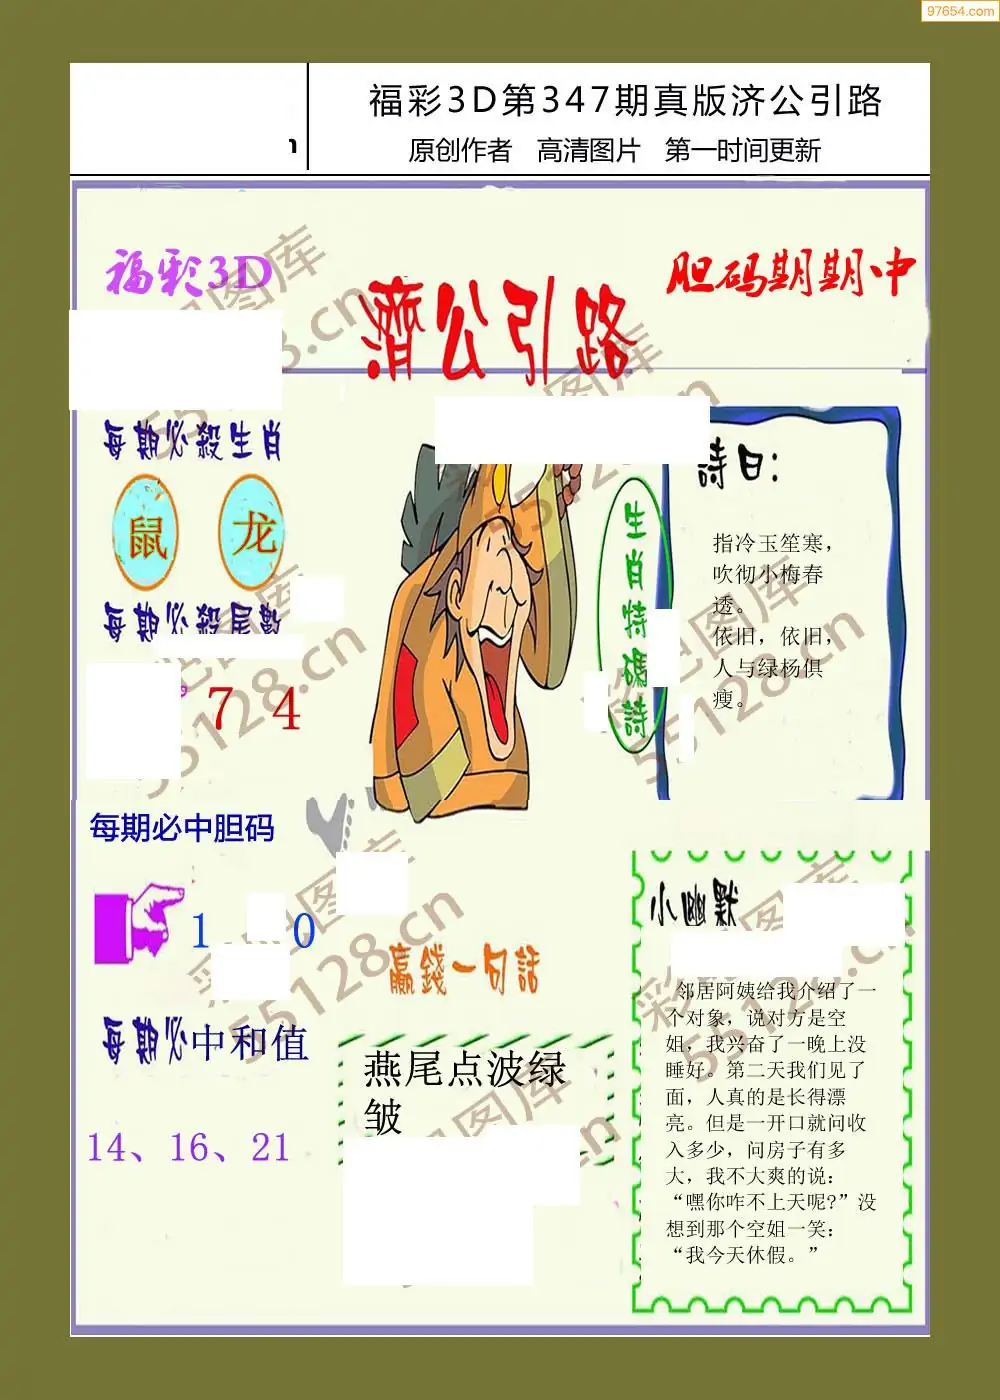 97654.com
福彩3D第347期真版济公引路
原创作者 高清图片 第一时间更新
福彩3D
胆码期期中
濟公引路
每期必殺生肖
鼠 龙
每期必殺尾數
7 4
每期必中胆码
1 0
每期必中和值
14、16、21
生肖特碼詩
詩曰：
指冷玉笙寒，
吹彻小梅春
透。
依旧，依旧，
人与绿杨俱
瘦。
贏錢一句話
燕尾点波绿
皱
小幽默
邻居阿姨给我介绍了一
个对象，说对方是空
姐，我兴奋了一晚上没
睡好。第二天我们见了
面，人真的是长得漂
亮。但是一开口就问收
入多少，问房子有多
大，我不大爽的说：
“嘿你咋不上天呢?”没
想到那个空姐一笑：
“我今天休假。”
彩图库
55128.cn